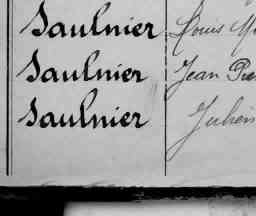 Saulnier Louis
Saulnier Jean
Saulnier Julien